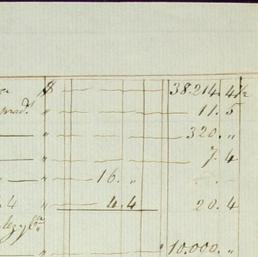 $ 38.214. 4½
mad.ª " 11. 5
" 320. "
" 7. 4
" 16. "
4 " 4. 4 20. 4
" 10.000. "